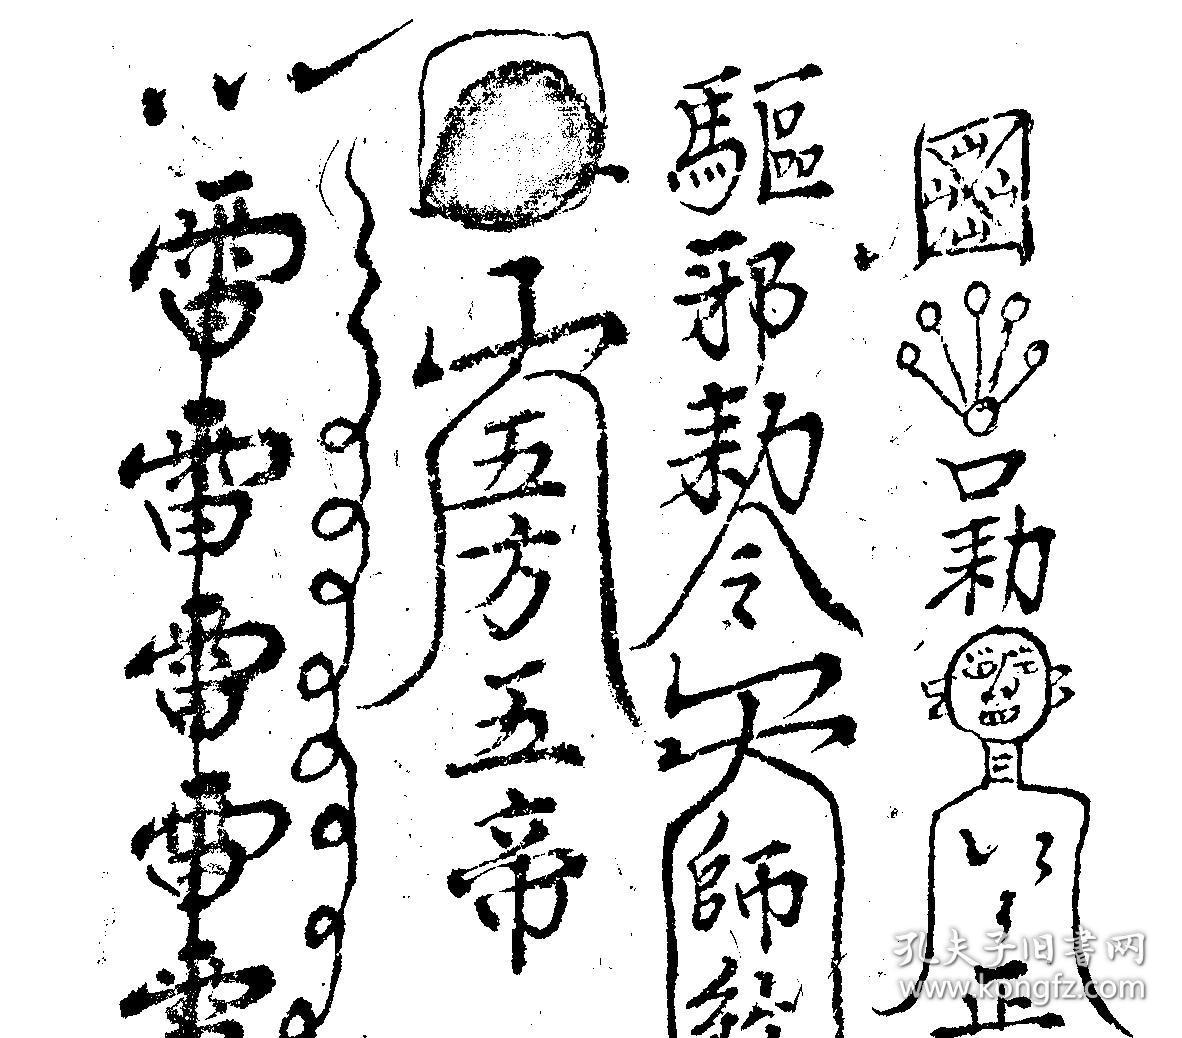 山山山山口勅正
驅邪勅令天師
五方五帝
雷雷雷雷雷
孔夫子旧書网
www.kongfz.com